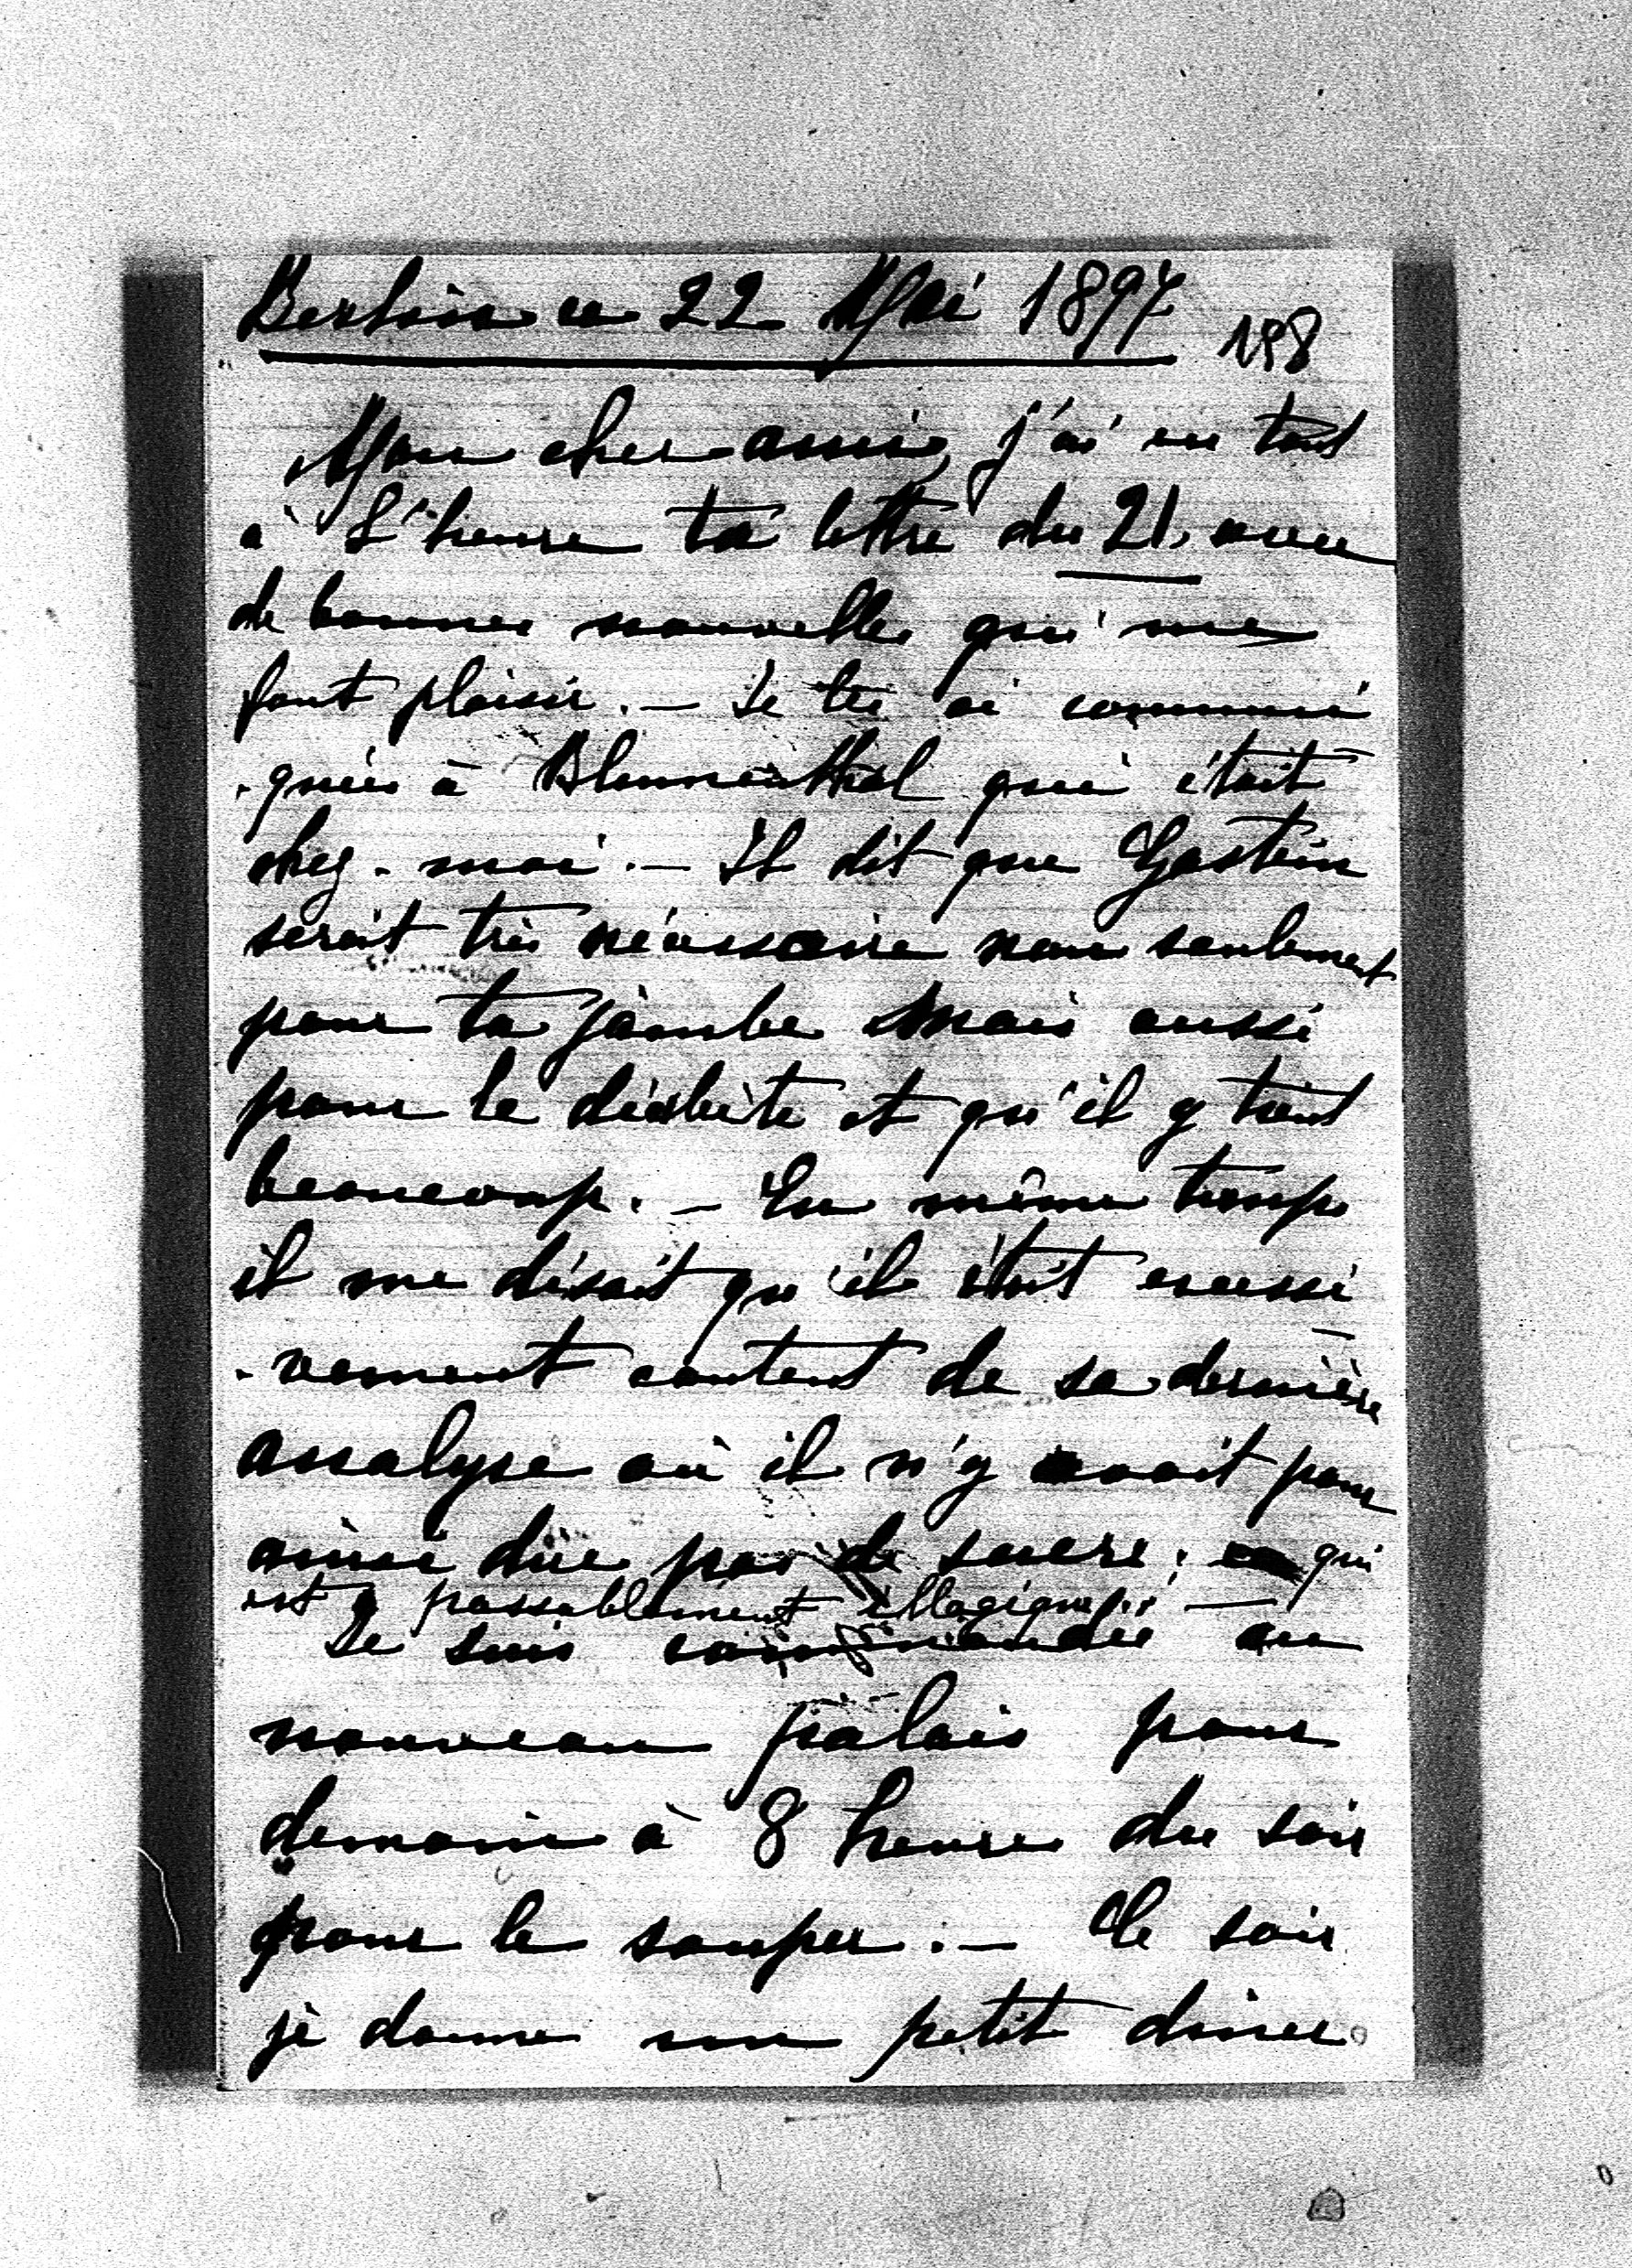 Berlin ce 22 Mai 1897 Nº 8
Mon cher ami, j'ai eu tout
à l'heure ta lettre du 21, avec
de bonnes nouvelles qui me
font plaisir. — Je les ai communi
-quées à Blumenthal qui était
chez-moi. — Il dit que Gastein
serait très nécessaire non seulement
pour ta jambe mais aussi
pour le diabète et qu'il y tient
beaucoup. — En même temps
il me disait qu'il était excessi
-vement content de sa dernière
analyse où il n'y avait pour
ainsi dire pas de sucre; qui
est passablement illogique! —
Je suis commandée au
nouveau palais pour
demain à 8 heures du soir
pour le souper. — Ce soir
je donne un petit diner